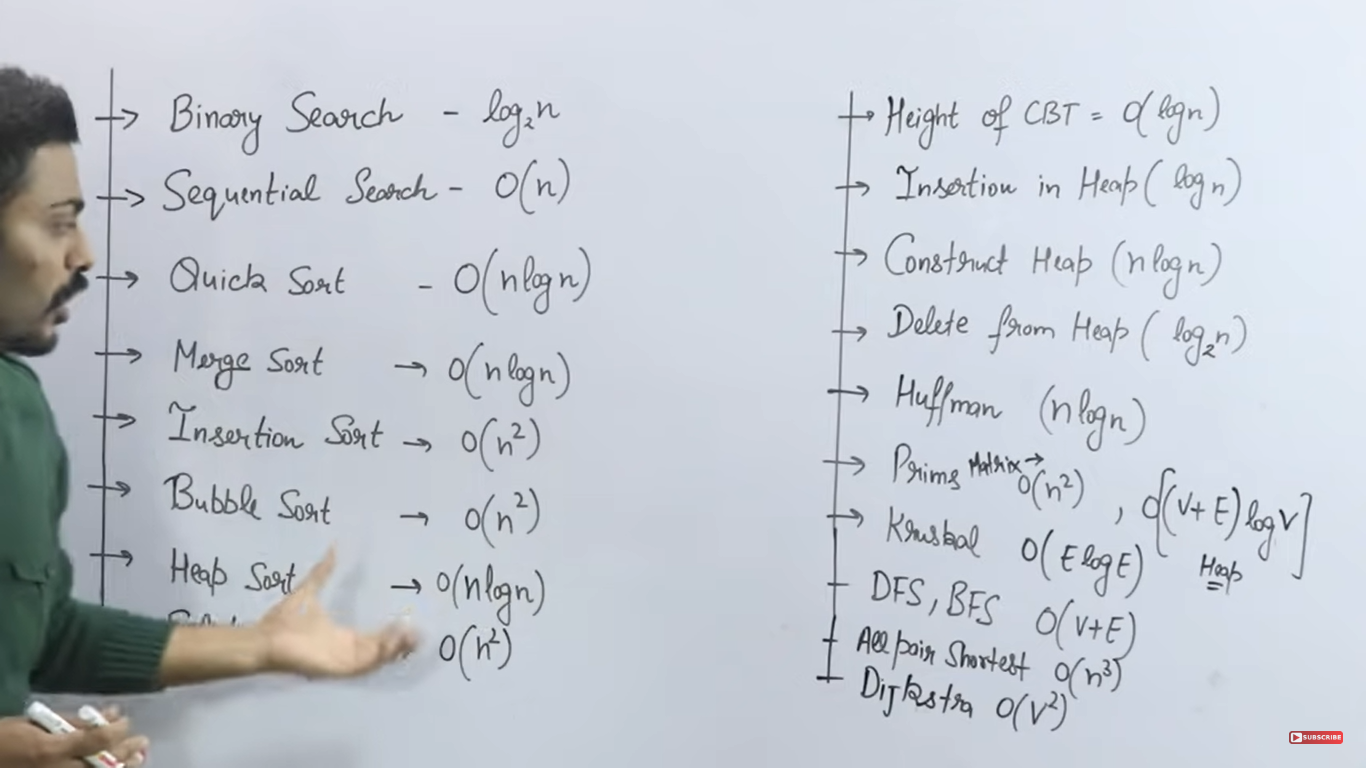 → Binary Search - log₂n
→ Sequential Search - O(n)
→ Quick Sort - O(nlogn)
→ Merge Sort → O(nlogn)
→ Insertion Sort → O(n²)
→ Bubble Sort → O(n²)
→ Heap Sort → O(nlogn)
O(n²)
→ Height of CBT = O(logn)
→ Insertion in Heap (logn)
→ Construct Heap (nlogn)
→ Delete from Heap (log₂n)
→ Huffman (nlogn)
→ Prims Matrix → O(n²), O[(V+E)logV]
Heap
→ Kruskal O(ElogE)
DFS, BFS O(V+E)
All pair Shortest O(n³)
Dijkstra O(V²)
SUBSCRIBE